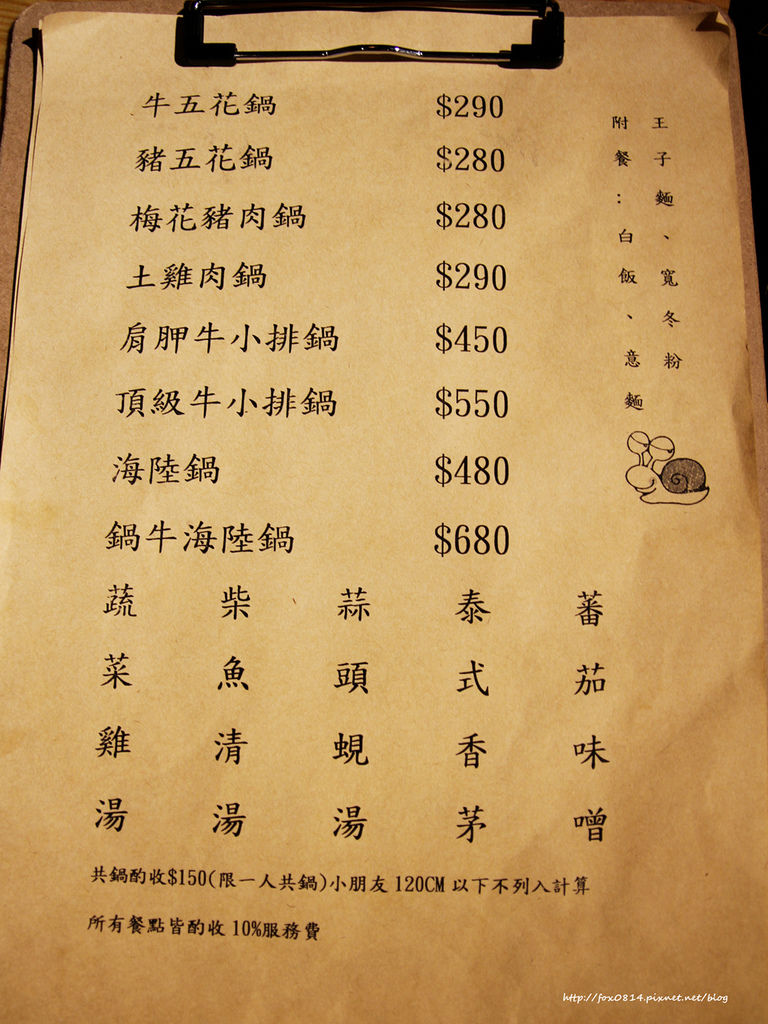 牛五花鍋 $290
豬五花鍋 $280
梅花豬肉鍋 $280
土雞肉鍋 $290
肩胛牛小排鍋 $450
頂級牛小排鍋 $550
海陸鍋 $480
鍋牛海陸鍋 $680
附餐：白飯、意麵
王子麵、寬冬粉
蕃茄味噌
泰式香茅
蒜頭蜆湯
柴魚清湯
蔬菜雞湯
共鍋酌收$150(限一人共鍋)小朋友120CM以下不列入計算
所有餐點皆酌收10%服務費
http://fox0814.pixnet.net/blog